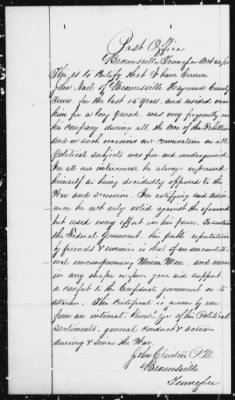 Post Office
Brownsville Tennessee Oct
This is to Certify that I have known
Noel of Brownsville Haywood County
Tenn for the last 15 years and resided near
him for a long period was very frequently in
his company during all the War of the Rebellion
and on such occasions our conversation on all
Political subjects was free and undisguised
In all our intercourse he always expressed
himself as being decidedly opposed to the
War and secession. In
he not only voted against the
but used every effort in his power to sustain
the Federal Government. his public reputation
by friends & enemies is that of an uncondit-
ional uncompromising Union Man and never
in any shape or form gave aid support
or comfort to the Confederate government or its
This Certificate is given by me
from an intimate knowledge of his Political
Sentiments, general conduct & actions
during & since the War
John Clinton P.M.
Brownsville
Tennessee